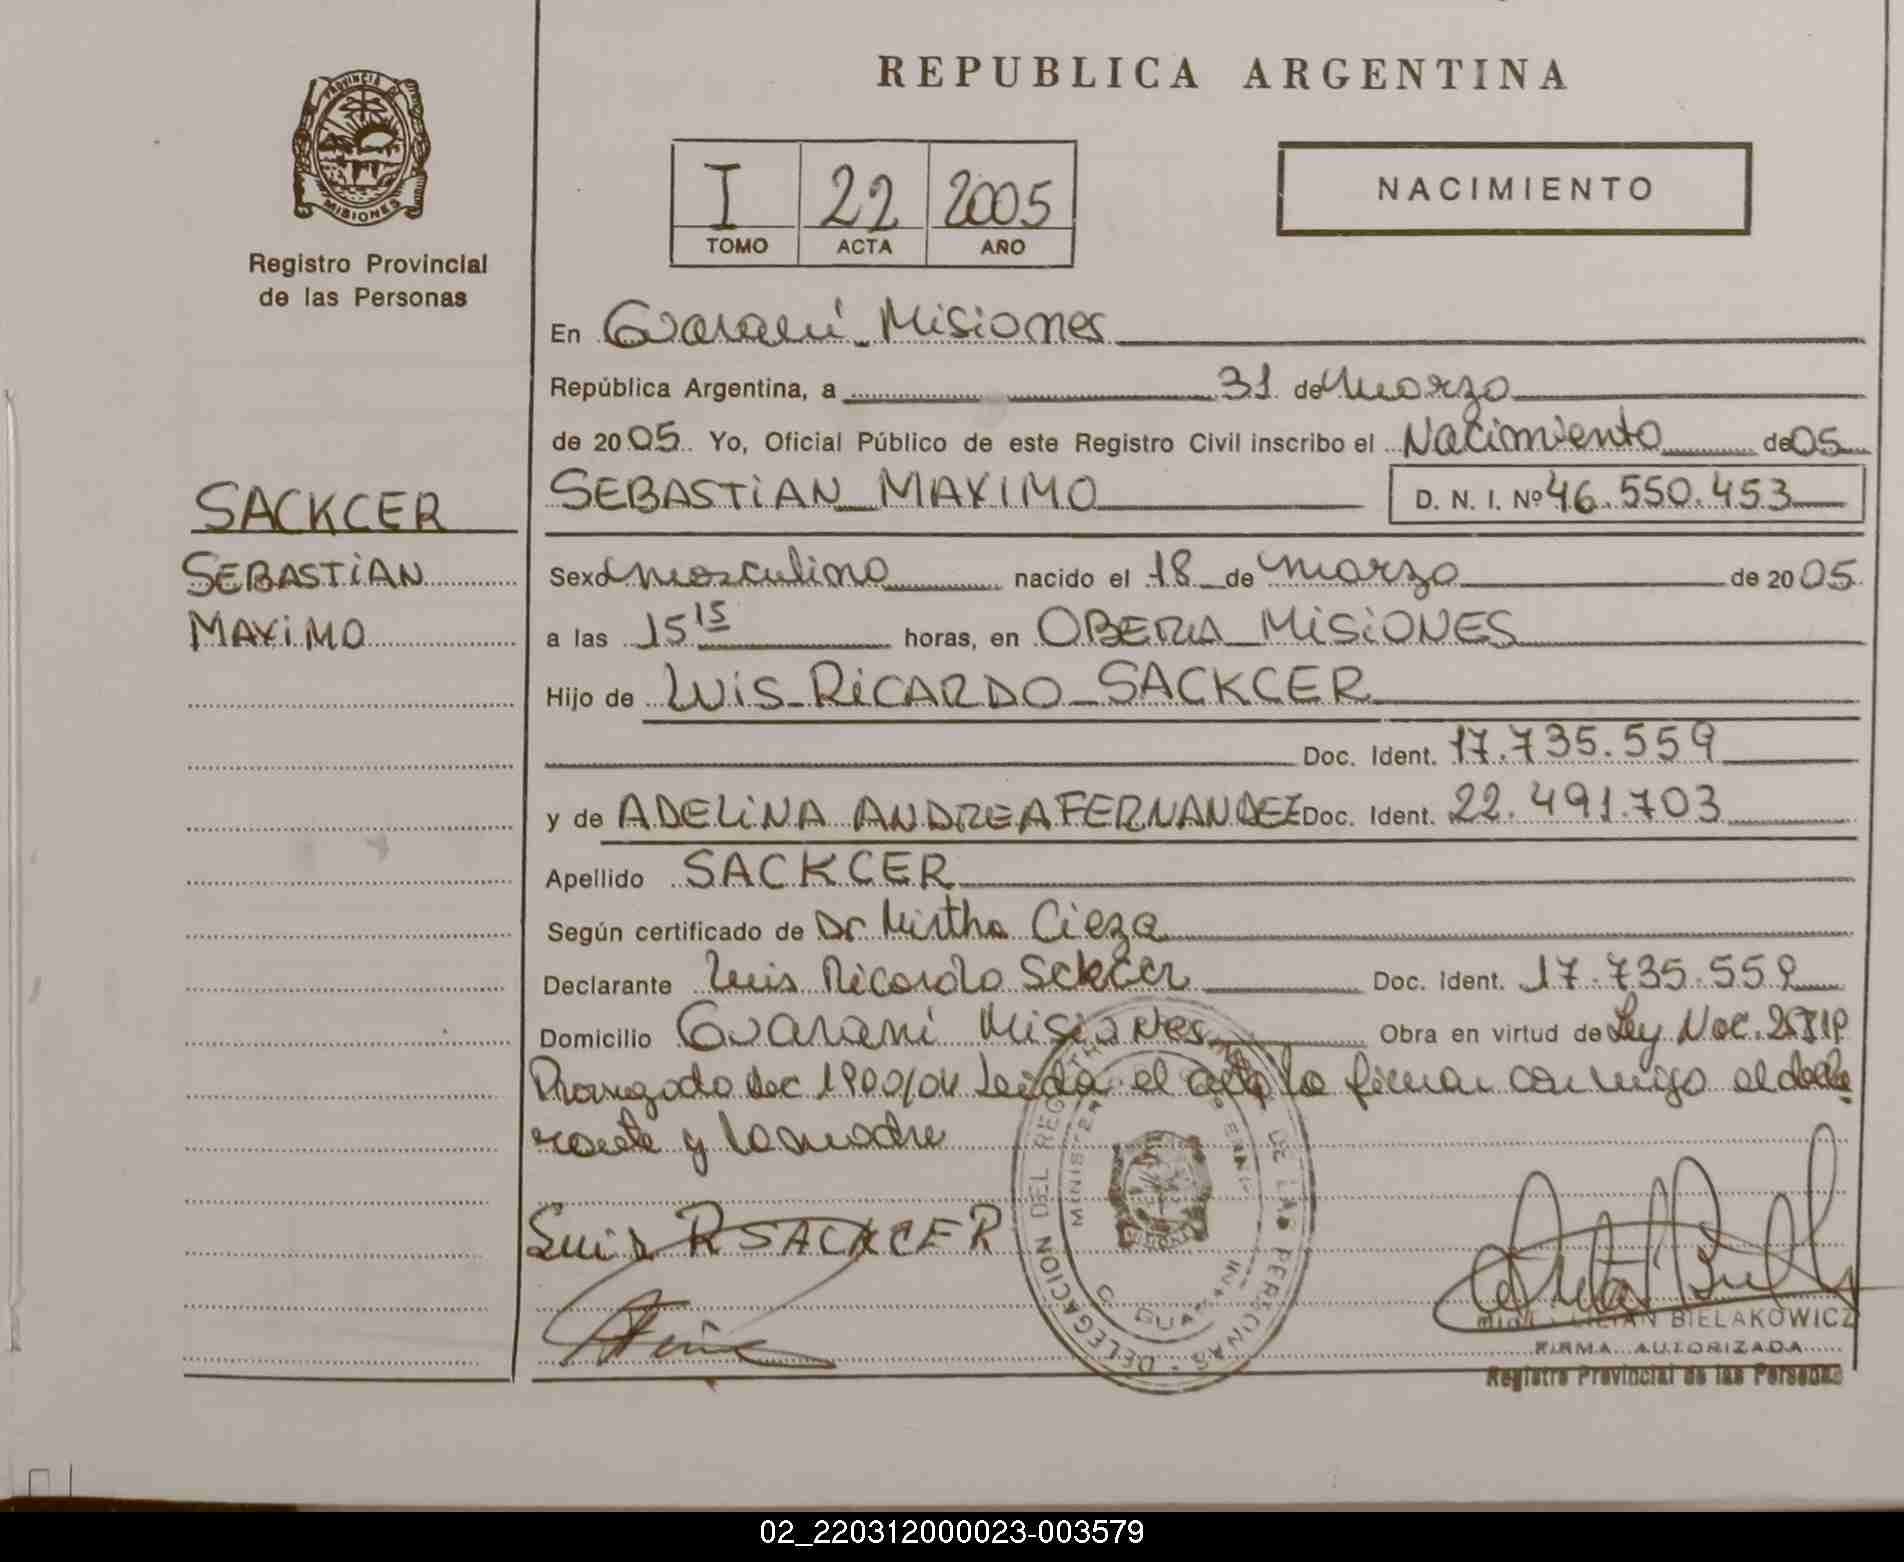 REPUBLICA ARGENTINA
PROVINCIA DE
MISIONES
Registro Provincial
de las Personas
I 22 2005
TOMO ACTA AÑO
NACIMIENTO
En Guaraní Misiones
República Argentina, a 31 de Marzo
de 2005 Yo, Oficial Público de este Registro Civil inscribo el Nacimiento de 05
SACKCER
SEBASTIAN
MAXIMO
SEBASTIAN MAXIMO D. N. I. Nº 46.550.453
Sexo masculino nacido el 18 de marzo de 2005
a las 15 15 horas, en OBERA MISIONES
Hijo de LUIS RICARDO SACKCER
Doc. Ident. 17.735.559
y de ADELINA ANDREA FERNANDEZ Doc. Ident. 22.491.703
Apellido SACKCER
Según certificado de Dr Mirtha Cieza
Declarante Luis Ricardo Sckcer Doc. Ident. 17.735.559
Domicilio Guarani Misiones Obra en virtud de Ley Nac. 25819
Dec 1900/04 Leída el acta la firman conmigo el decla
rante y la madre
Luis R SACKCER
DELEGACION DEL REG DE LAS PERSONAS
LILIAN BIELAKOWICZ
FIRMA AUTORIZADA
Registro Provincial de las Personas
02_220312000023-003579